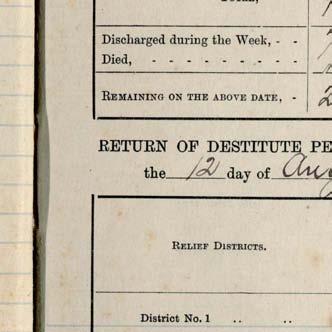 Discharged during the Week, - -
Died, - - - - - - - -
REMAINING ON THE ABOVE DATE, - 2
RETURN OF DESTITUTE PE
the 12 day of Aug
RELIEF DISTRICTS.
District No. 1 .. ..